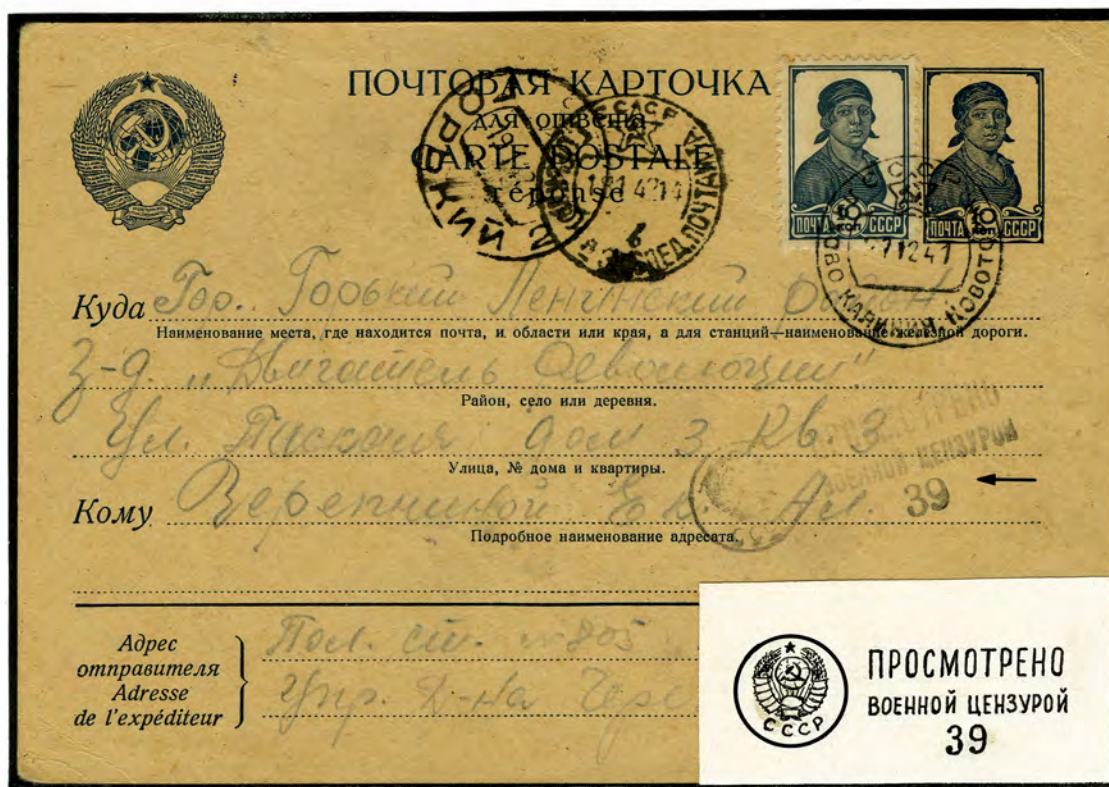 ПОЧТОВАЯ КАРТОЧКА
для ответа
CARTE POSTALE
réponse
ПОЧТА 10 СССР
ПОЧТА 10 СССР
ГОРЬКИЙ
18 1 42 14
ЭКСПЕД. ПОЧТАМТА
21 12 41
Куда Гор. Горький Ленинский район
Наименование места, где находится почта, и области или края, а для станций—наименование железной дороги.
З-д. „Двигатель Революции"
Район, село или деревня.
Ул. дом 3 Кв. 3
Улица, № дома и квартиры.
ПРОСМОТРЕНО
ВОЕННОЙ ЦЕНЗУРОЙ
39
Кому Ек. Ал.
Подробное наименование адресата.
Адрес
отправителя
Adresse
de l'expéditeur
Пол. ст. № 805
Упр. Д-на
СССР
ПРОСМОТРЕНО
ВОЕННОЙ ЦЕНЗУРОЙ
39